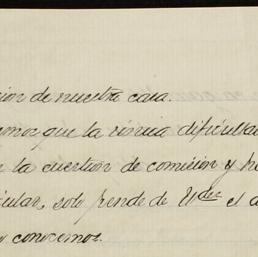 ion de nuestra casa.
emos que la única dificultad
n la cuestion de comision y h
icular, solo pende de Udes el a
o conocemos.